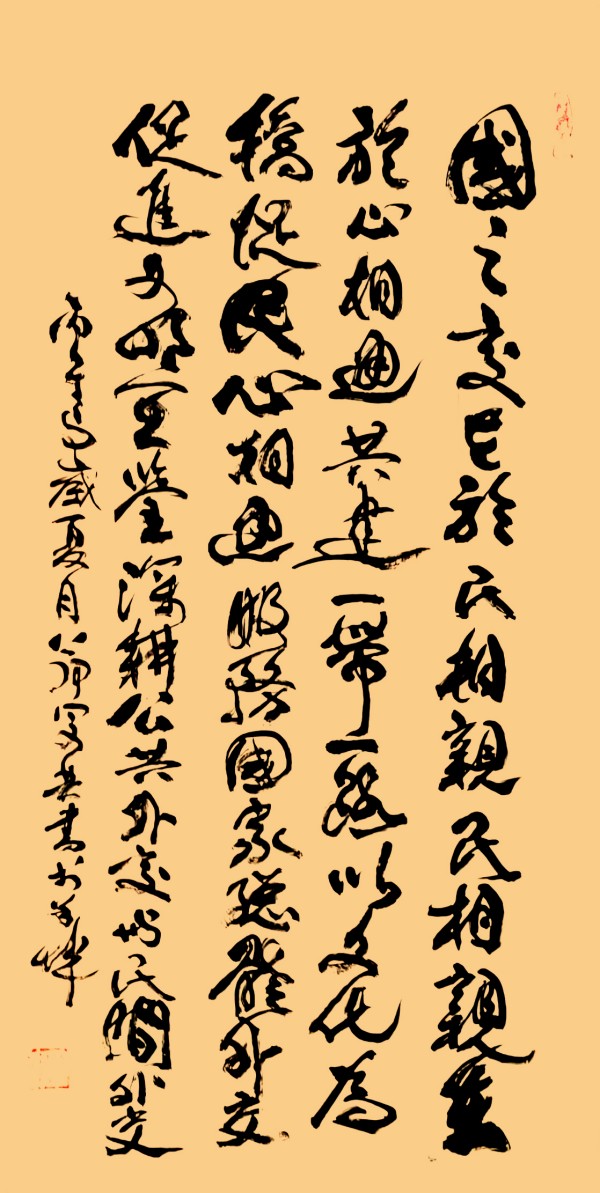 國之交在於民相親民相親在
於心相通共建一帶一路以文化為
橋促民心相通服務國家總體外交
促進文明互鑒深耕公共外交與民間外交
歲夏月節寫書於